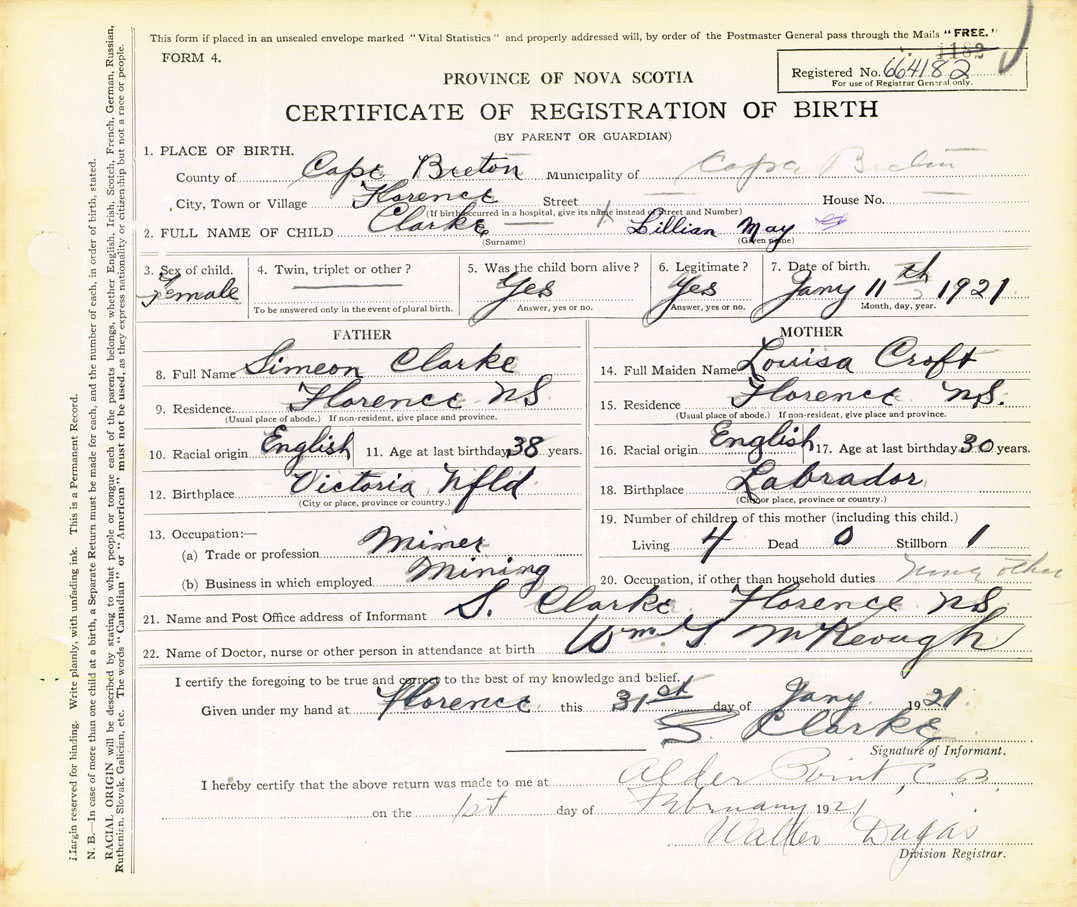 This form if placed in an unsealed envelope marked "Vital Statistics" and properly addressed will, by order of the Postmaster General pass through the Mails "FREE."
FORM 4.
1182
Registered No. 664182
For use of Registrar General only.
PROVINCE OF NOVA SCOTIA
CERTIFICATE OF REGISTRATION OF BIRTH
(BY PARENT OR GUARDIAN)
1. PLACE OF BIRTH.
County of Cape Breton Municipality of Cape Breton
City, Town or Village Florence Street House No.
(If birth occurred in a hospital, give its name instead of Street and Number)
2. FULL NAME OF CHILD Clarke Lillian May
(Surname) (Given name)
3. Sex of child. Female
4. Twin, triplet or other?
To be answered only in the event of plural birth.
5. Was the child born alive? Yes
Answer, yes or no.
6. Legitimate? Yes
Answer, yes or no.
7. Date of birth. Jany 11th 1921
Month, day, year.
FATHER
8. Full Name Simeon Clarke
9. Residence Florence NS
(Usual place of abode.) If non-resident, give place and province.
10. Racial origin English 11. Age at last birthday 38 years.
12. Birthplace Victoria Nfld
(City or place, province or country.)
13. Occupation:—
(a) Trade or profession Miner
(b) Business in which employed Mining
MOTHER
14. Full Maiden Name Louisa Croft
15. Residence Florence NS.
(Usual place of abode.) If non-resident, give place and province.
16. Racial origin English 17. Age at last birthday 30 years.
18. Birthplace Labrador
(City or place, province or country.)
19. Number of children of this mother (including this child.)
Living 4 Dead 0 Stillborn 1
20. Occupation, if other than household duties other
21. Name and Post Office address of Informant S. Clarke Florence NS
22. Name of Doctor, nurse or other person in attendance at birth Wm G McKeough
I certify the foregoing to be true and correct to the best of my knowledge and belief.
Given under my hand at Florence this 31st day of Jany 1921
S. Clarke
Signature of Informant.
I hereby certify that the above return was made to me at Alder Point, C B
on the 1st day of February 1921
Walter Dugas
Division Registrar.
Margin reserved for binding. Write plainly, with unfading ink. This is a Permanent Record.
N. B.—In case of more than one child at a birth, a Separate Return must be made for each, and the number of each, in order of birth, stated.
RACIAL ORIGIN will be described by stating to what people or tongue each of the parents belongs, whether English, Irish, Scotch, French, German, Russian,
Ruthenian, Slovak, Galician, etc. The words "Canadian" or "American" must not be used, as they express nationality or citizenship but not a race or people.